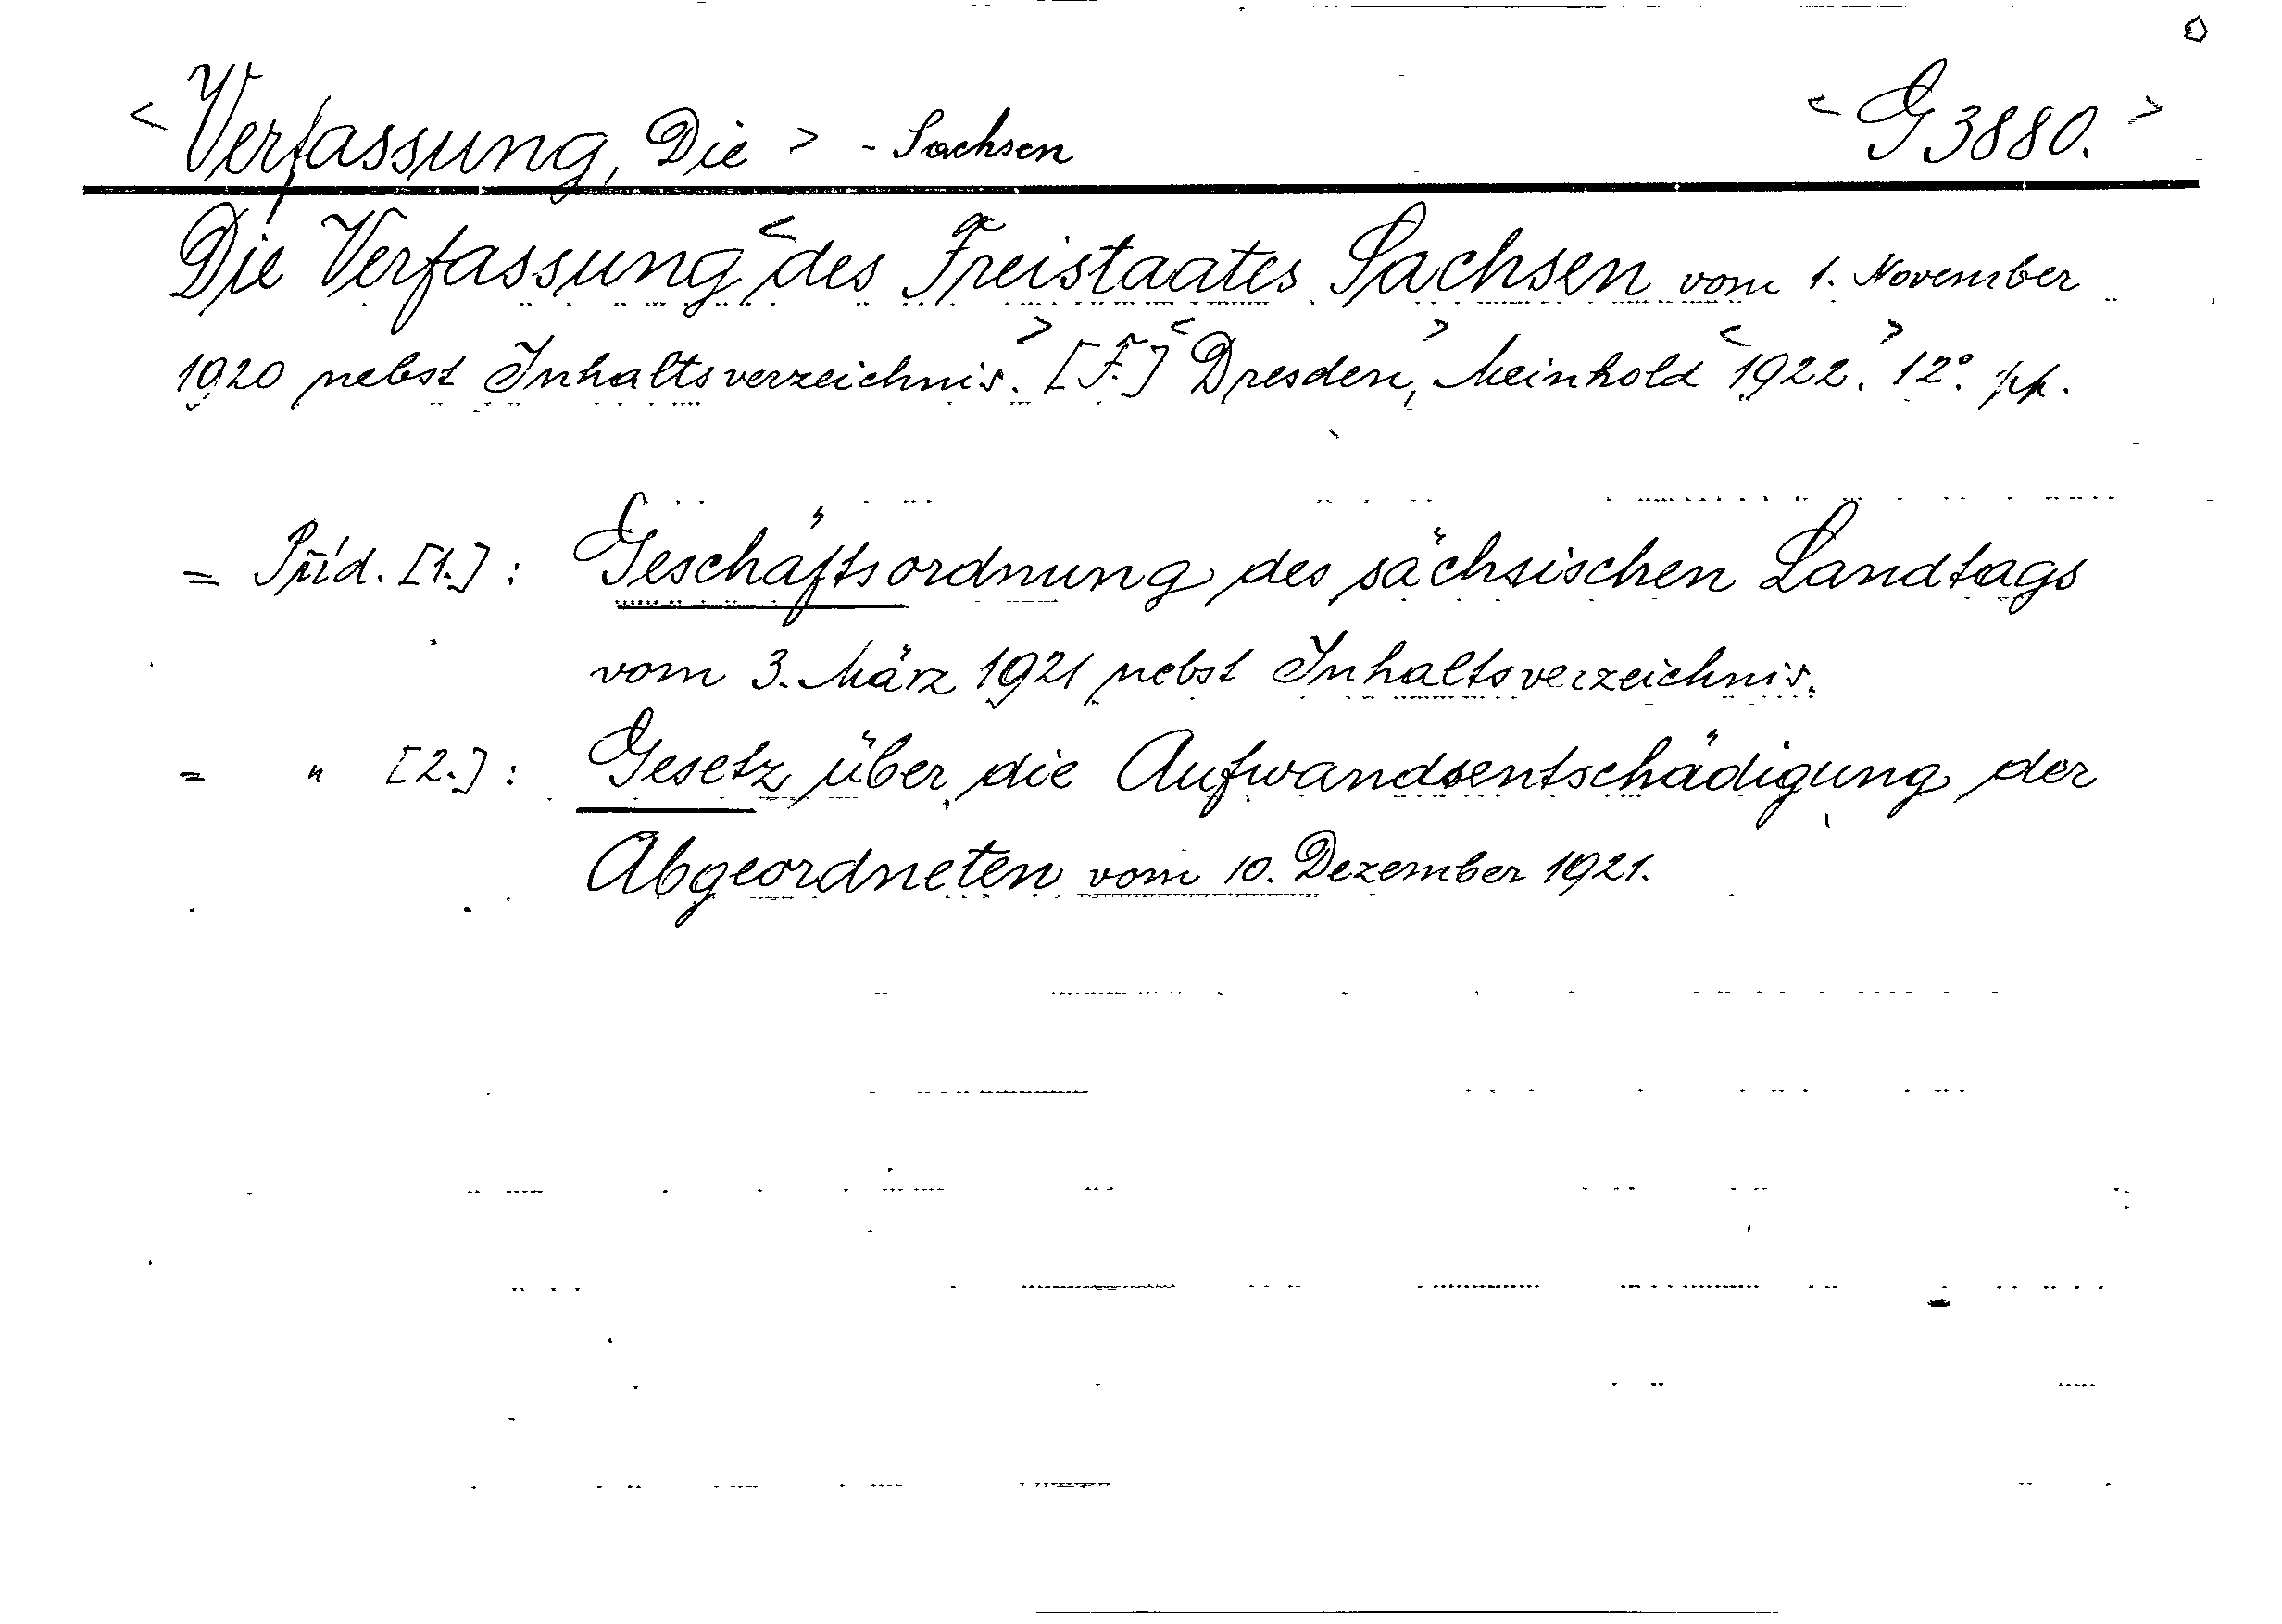 < Verfassung, Die > - Sachsen < G 3880. >
Die Verfassung < des Freistaates Sachsen vom 1. November
1920 nebst Inhaltsverzeichnis. > [F.] < Dresden, > Meinhold < 1922. > 12°. pp.
= Präd. [1.] : Geschäftsordnung des sächsischen Landtags
vom 3. März 1921 nebst Inhaltsverzeichnis.
= " [2.] : Gesetz über die Aufwandsentschädigung der
Abgeordneten vom 10. Dezember 1921.